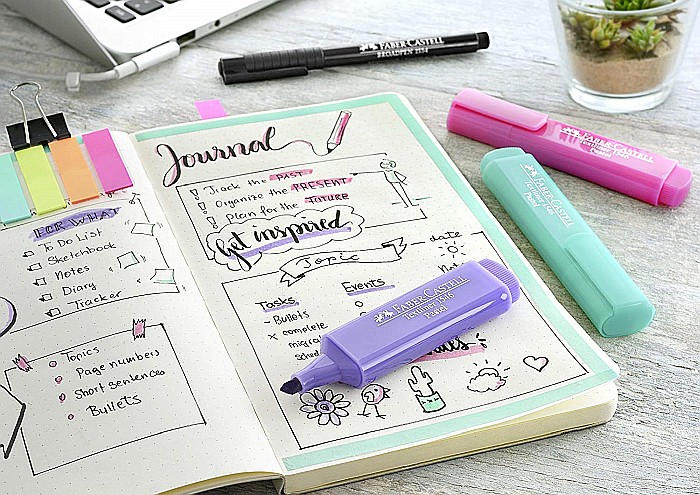 FABER-CASTELL
BROADPEN 1554
FABER-CASTELL
TEXTLINER 1546
Pastel
FABER-CASTELL
TEXTLINER 1546
Pastel
FOR WHAT
To Do List
Sketchbook
Notes
Diary
Tracker
Topics
Page numbers
Short sentences
Bullets
Journal
Track the PAST
Organize the PRESENT
Plan for the FUTURE
Get inspired
Topic
date
Tasks
Events
Bullets
x complete
FABER-CASTELL
TEXTLINER 1546
Pastel